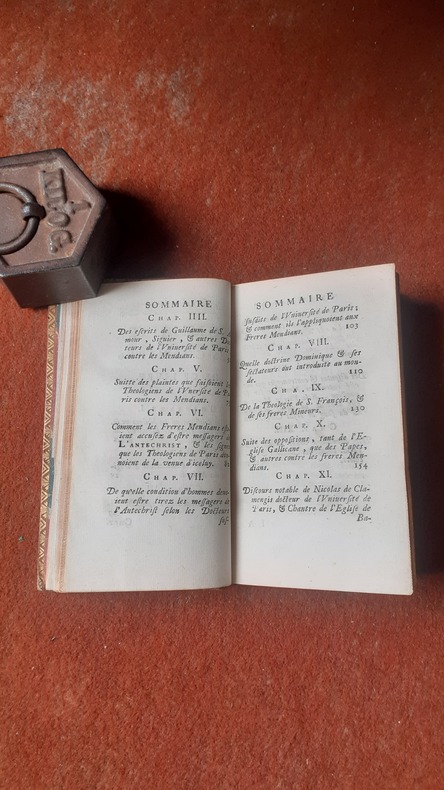 SOMMAIRE
CHAP. IIII.
Des escrits de Guillaume de S.
mour, Siguier, & autres Do
teurs de l'Vniuersité de Paris
contre les Mendians.
CHAP. V.
Suitte des plaintes que faisoient les
Theologiens de l'Vniuersité de Pa
ris contre les Mendians.
CHAP. VI.
Comment les Freres Mendians est
ient accusez d'estre messagers
L'ANTECHRIST, & les signes
que les Theologiens de Paris
noient de la venue d'iceluy.
CHAP. VII.
De quelle condition d'hommes deu
ient estre tirez les messagers
l'Antechrist selon les Docteurs
sus-
SOMMAIRE
susdits de l'Vniuersité de Paris;
& comment ils l'appliquoient aux
Freres Mendians. 103
CHAP. VIII.
Quelle doctrine Dominique & ses
sectateurs ont introduite au mon-
de. 110
CHA. IX.
De la Theologie de S. François, &
de ses freres Mineurs. 130
CHAP. X.
Suite des oppositions, tant de l'E-
glise Gallicane, que des Papes,
& autres contre les freres Men-
dians. 154
CHAP. XI.
Discours notable de Nicolas de Cla-
mengis docteur de l'Vniuersité de
Paris, & Chantre de l'Eglise de
Ba-